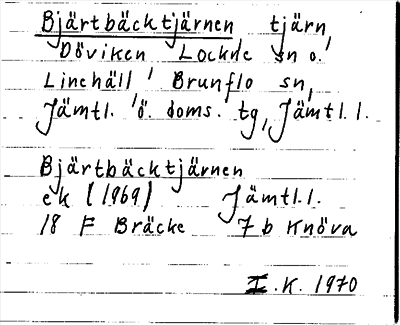 Bjärtbäcktjärnen tjärn,
Döviken Lockne sn o.
Linehäll, Brunflo sn,
Jämtl. ö. doms. tg, Jämtl. l.
Bjärtbäcktjärnen
ek (1969) Jämtl. l.
18 F Bräcke 7 b Knöva
I. K. 1970